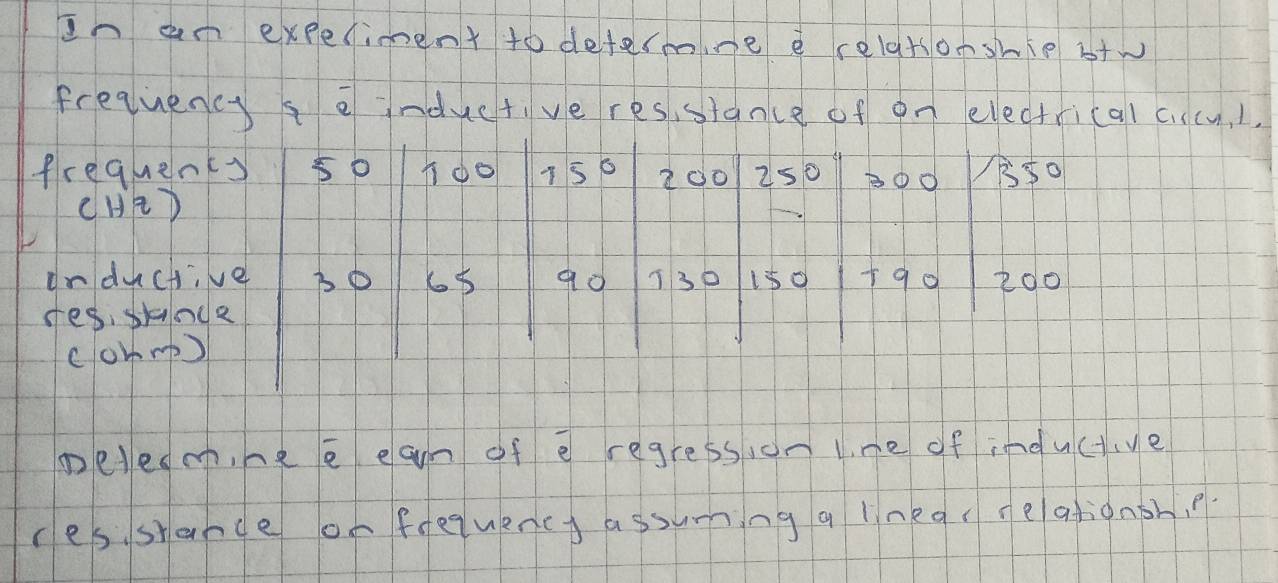 In an experiment to determine ē relationship btw
frequency & ē inductive resistance of an electrical circuit.
frequency 50 100 150 200 250 300 350
(Hz)
inductive 30 65 90 130 150 190 200
resistance
(ohm)
Determine ē eqn of ē regression line of inductive
resistance on frequency assuming a linear relationship.